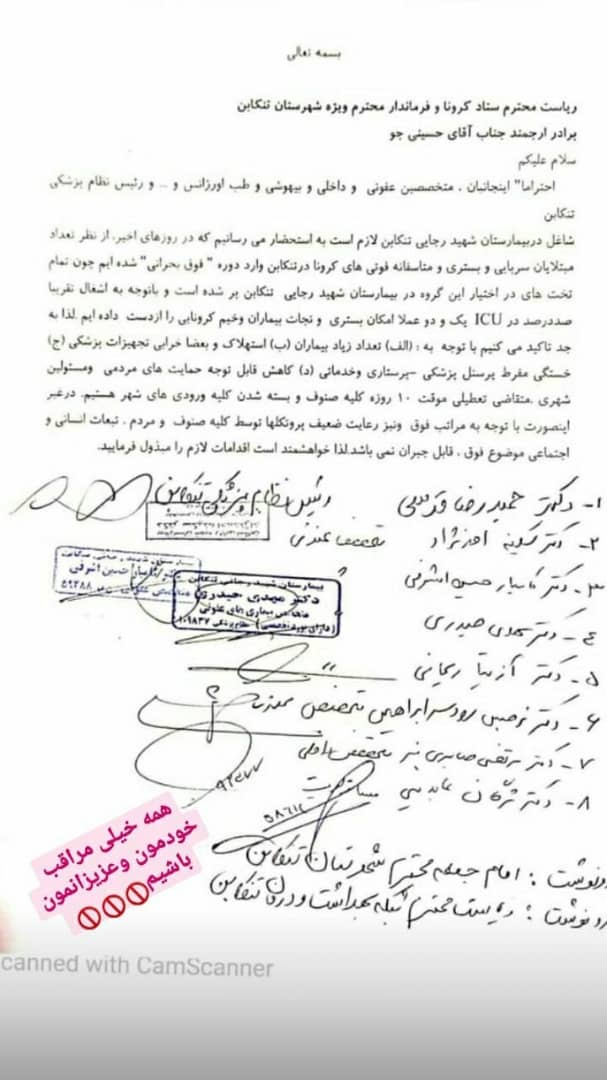 بسمه تعالی
ریاست محترم ستاد کرونا و فرماندار محترم ویژه شهرستان تنکابن
برادر ارجمند جناب آقای حسینی جو
سلام علیکم
احتراما" اینجانبان ، متخصصین عفونی و داخلی و بیهوشی و طب اورژانس و ... و رئیس نظام پزشکی
تنکابن
شاغل دربیمارستان شهید رجایی تنکابن لازم است به استحضار می رسانیم که در روزهای اخیر، از نظر تعداد
مبتلایان سرپایی و بستری و متاسفانه فوتی های کرونا درتنکابن وارد دوره " فوق بحرانی" شده ایم چون تمام
تخت های در اختیار این گروه در بیمارستان شهید رجایی تنکابن پر شده است و باتوجه به اشغال تقریبا
صددرصد در ICU یک و دو عملا امکان بستری و نجات بیماران وخیم کرونایی را ازدست داده ایم .لذا به
جد تاکید می کنیم با توجه به : (الف) تعداد زیاد بیماران (ب) استهلاک و بعضا خرابی تجهیزات پزشکی (ج)
خستگی مفرط پرسنل پزشکی -پرستاری وخدماتی (د) کاهش قابل توجه حمایت های مردمی ومسئولین
شهری ،متقاضی تعطیلی موقت ۱۰ روزه کلیه صنوف و بسته شدن کلیه ورودی های شهر هستیم. درغیر
اینصورت با توجه به مراتب فوق ونیز رعایت ضعیف پروتکلها توسط کلیه صنوف و مردم ، تبعات انسانی و
اجتماعی موضوع فوق ، قابل جبران نمی باشد.لذا خواهشمند است اقدامات لازم را مبذول فرمایید.
۱- دکتر حمیدرضا قدسی رئیس نظام پزشکی تنکابن
۲- دکتر تخصص عفونی
۳- دکتر مازیار حسین اشرفی
بیمارستان شهید رجایی تنکابن
دکتر مهدی حیدری
متخصص بیماری های عفونی
(دارای بورد تخصصی) نظام پزشکی ۱۰۹۸۳۷
۴- دکتر مهدی حیدری
۵- دکتر آزیتا ریحانی "
۶- دکتر نرجس رودسرابراهیمی متخصص
۷- دکتر مرتضی صابری متخصص داخلی
۸- دکتر مژگان
رونوشت : امام جمعه محترم شهرستان تنکابن
رونوشت : ریاست محترم شبکه بهداشت و درمان تنکابن
همه خیلی مراقب
خودمون وعزیزانمون
باشیم🚫🚫🚫
canned with CamScanner